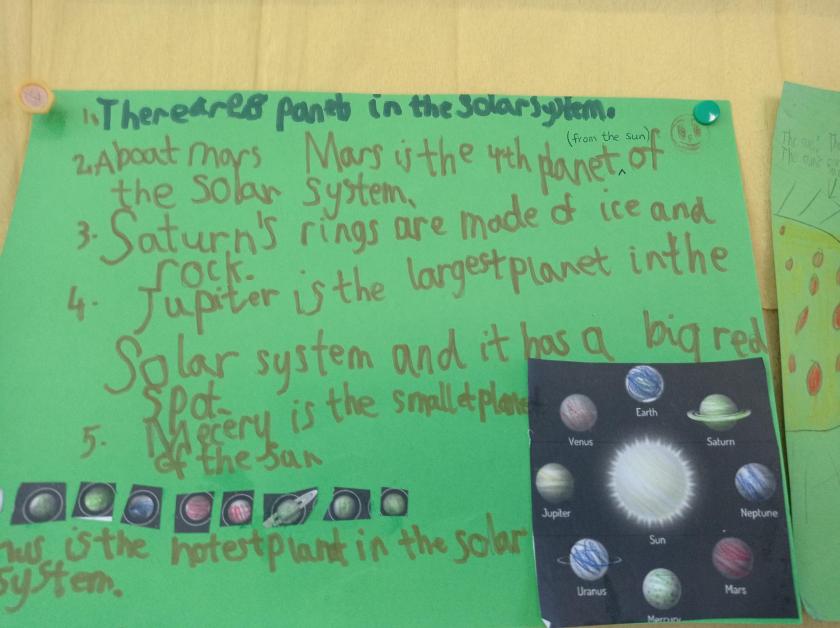 1. There are 8 panets in the solar system.
(from the sun)
2. About mars Mars is the 4th planet ^ of
the solar system.
3. Saturn's rings are made of ice and
rock.
4. Jupiter is the largest planet in the
Solar system and it has a big red
spot.
5. Mecery is the smallest plane
of the sun
nus is the hotest plant in the solar
system.
Earth
Venus
Saturn
Jupiter
Neptune
Sun
Uranus
Mars
Mercury